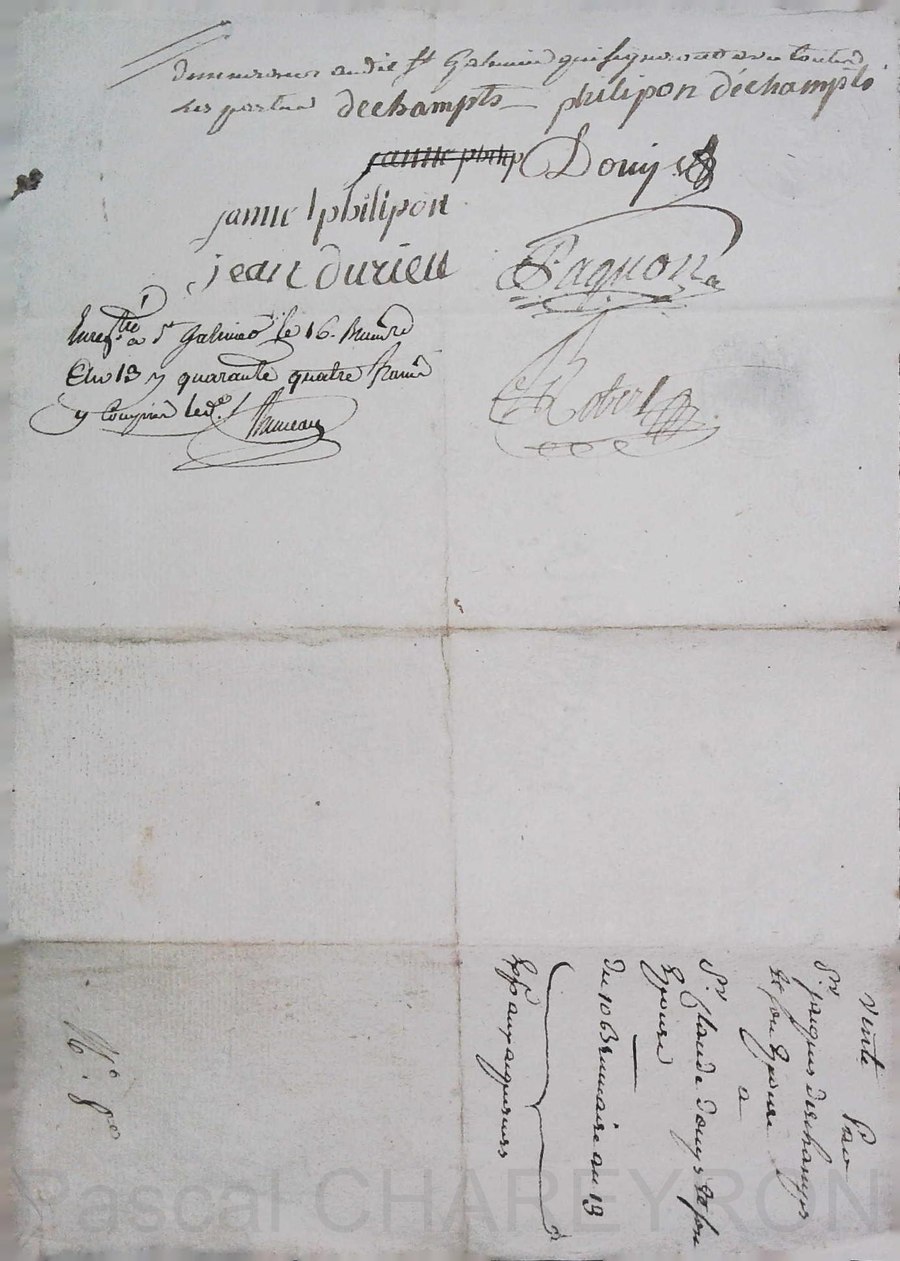 demeurant audit St Galmier qui signeront avec toutes
les parties dechampts philipon déchampts
janne philip Douys
janne philipon
jean durieu Pagnon
Enregtré à St Galmier le 16. Brumre
An 13 R quarante quatre francs
y compris le de. Robert
Vente Par
Sr jaques deschamps
Et son Epouse
a
Sr Claude Douys Et son
Epouse
Du 10 Brumaire an 13
Expn aux aquereurs
Pascal CHAREYRON